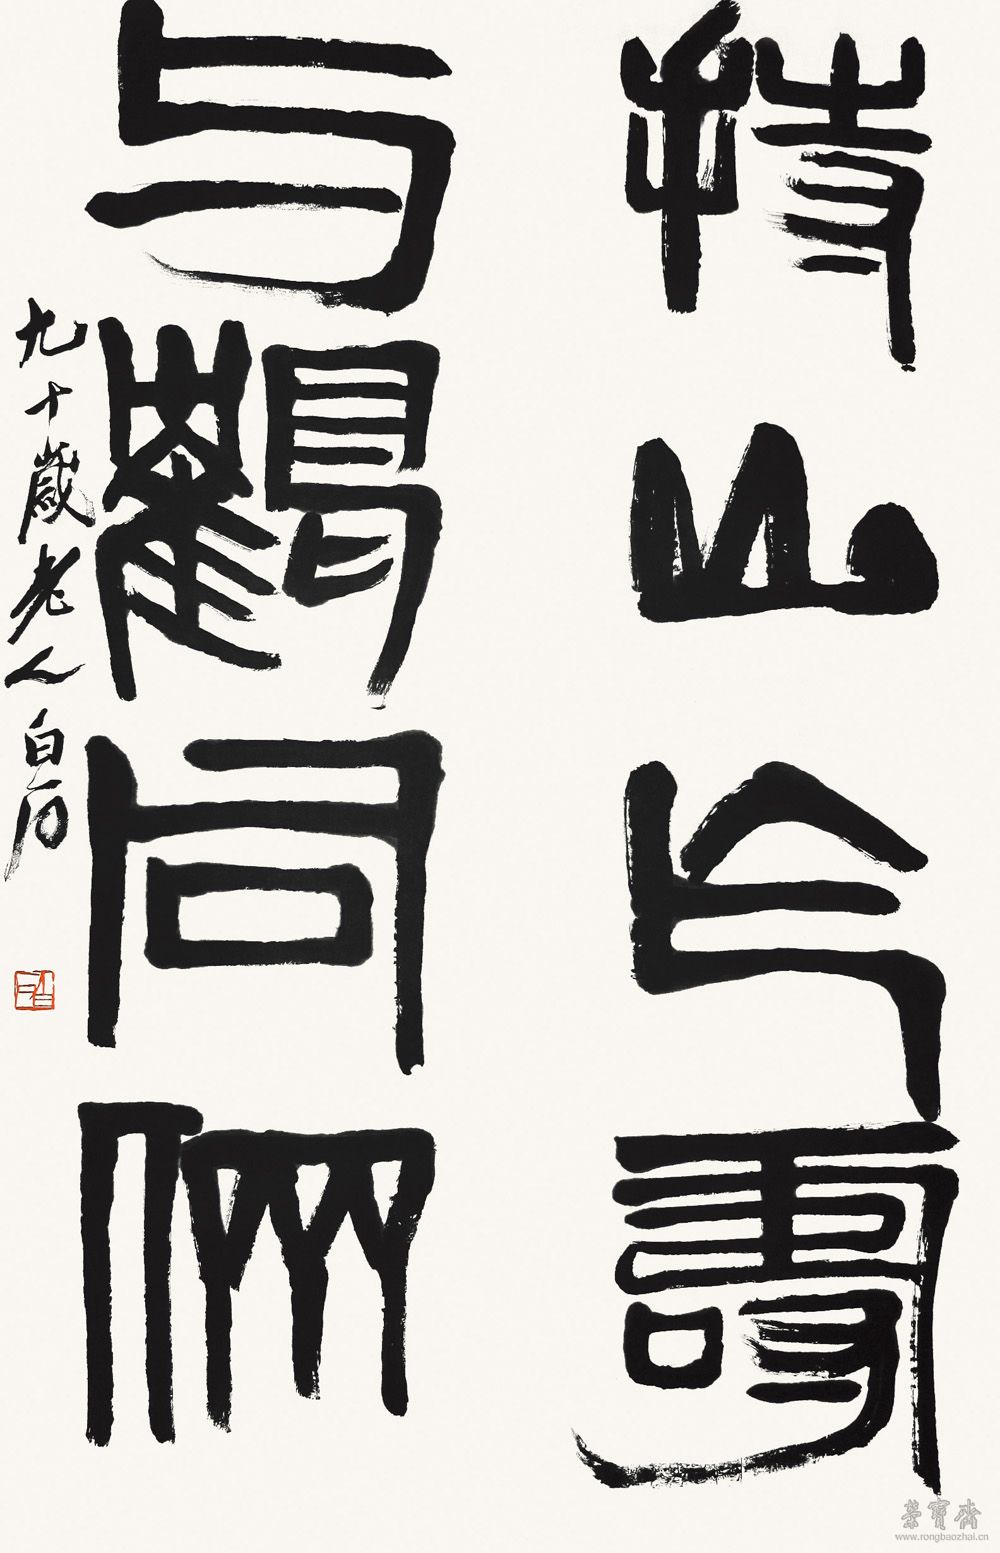 持山乍壽
与鶴同儕
九十歲老人白石
榮寶齋
www.rongbaozhai.cn